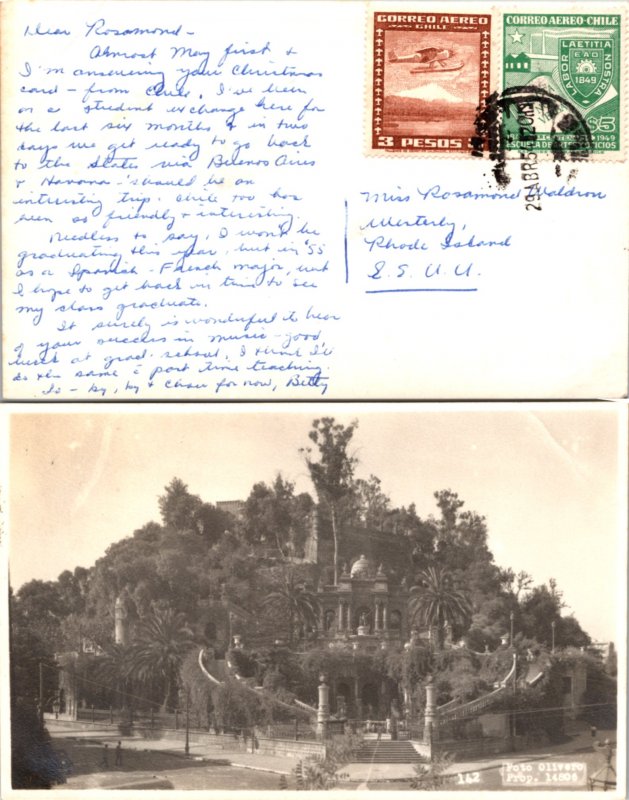 Dear Rosamond -
Almost May first &
I'm answering your Christmas
card - from Chile. I've been
on a student exchange here for
the last six months & in two
days we get ready to go back
to the States via Buenos Aires
& Havana - should be an
interesting trip. Chile too has
been so friendly & interesting.
Needless to say, I won't be
graduating this year, but in '55
as a Spanish - French major, but
I hope to get back in time to see
my class graduate.
It surely is wonderful to hear
of your success in music - good
luck at grad. school. I think I'll
do the same & part time teaching.
So - by, by & Chau for now, Betty
CORREO AEREO
CHILE
3 PESOS
CORREO AEREO · CHILE
LABOR LAETITIA NOSTRA
E A O
1849
$5
1949
ESCUELA DE ARTES OFICIOS
29 ABR 5
Miss Rosamond Waldron
Westerly,
Rhode Island
E. E. U. U.
142
Foto Olivero
Prop. 14806